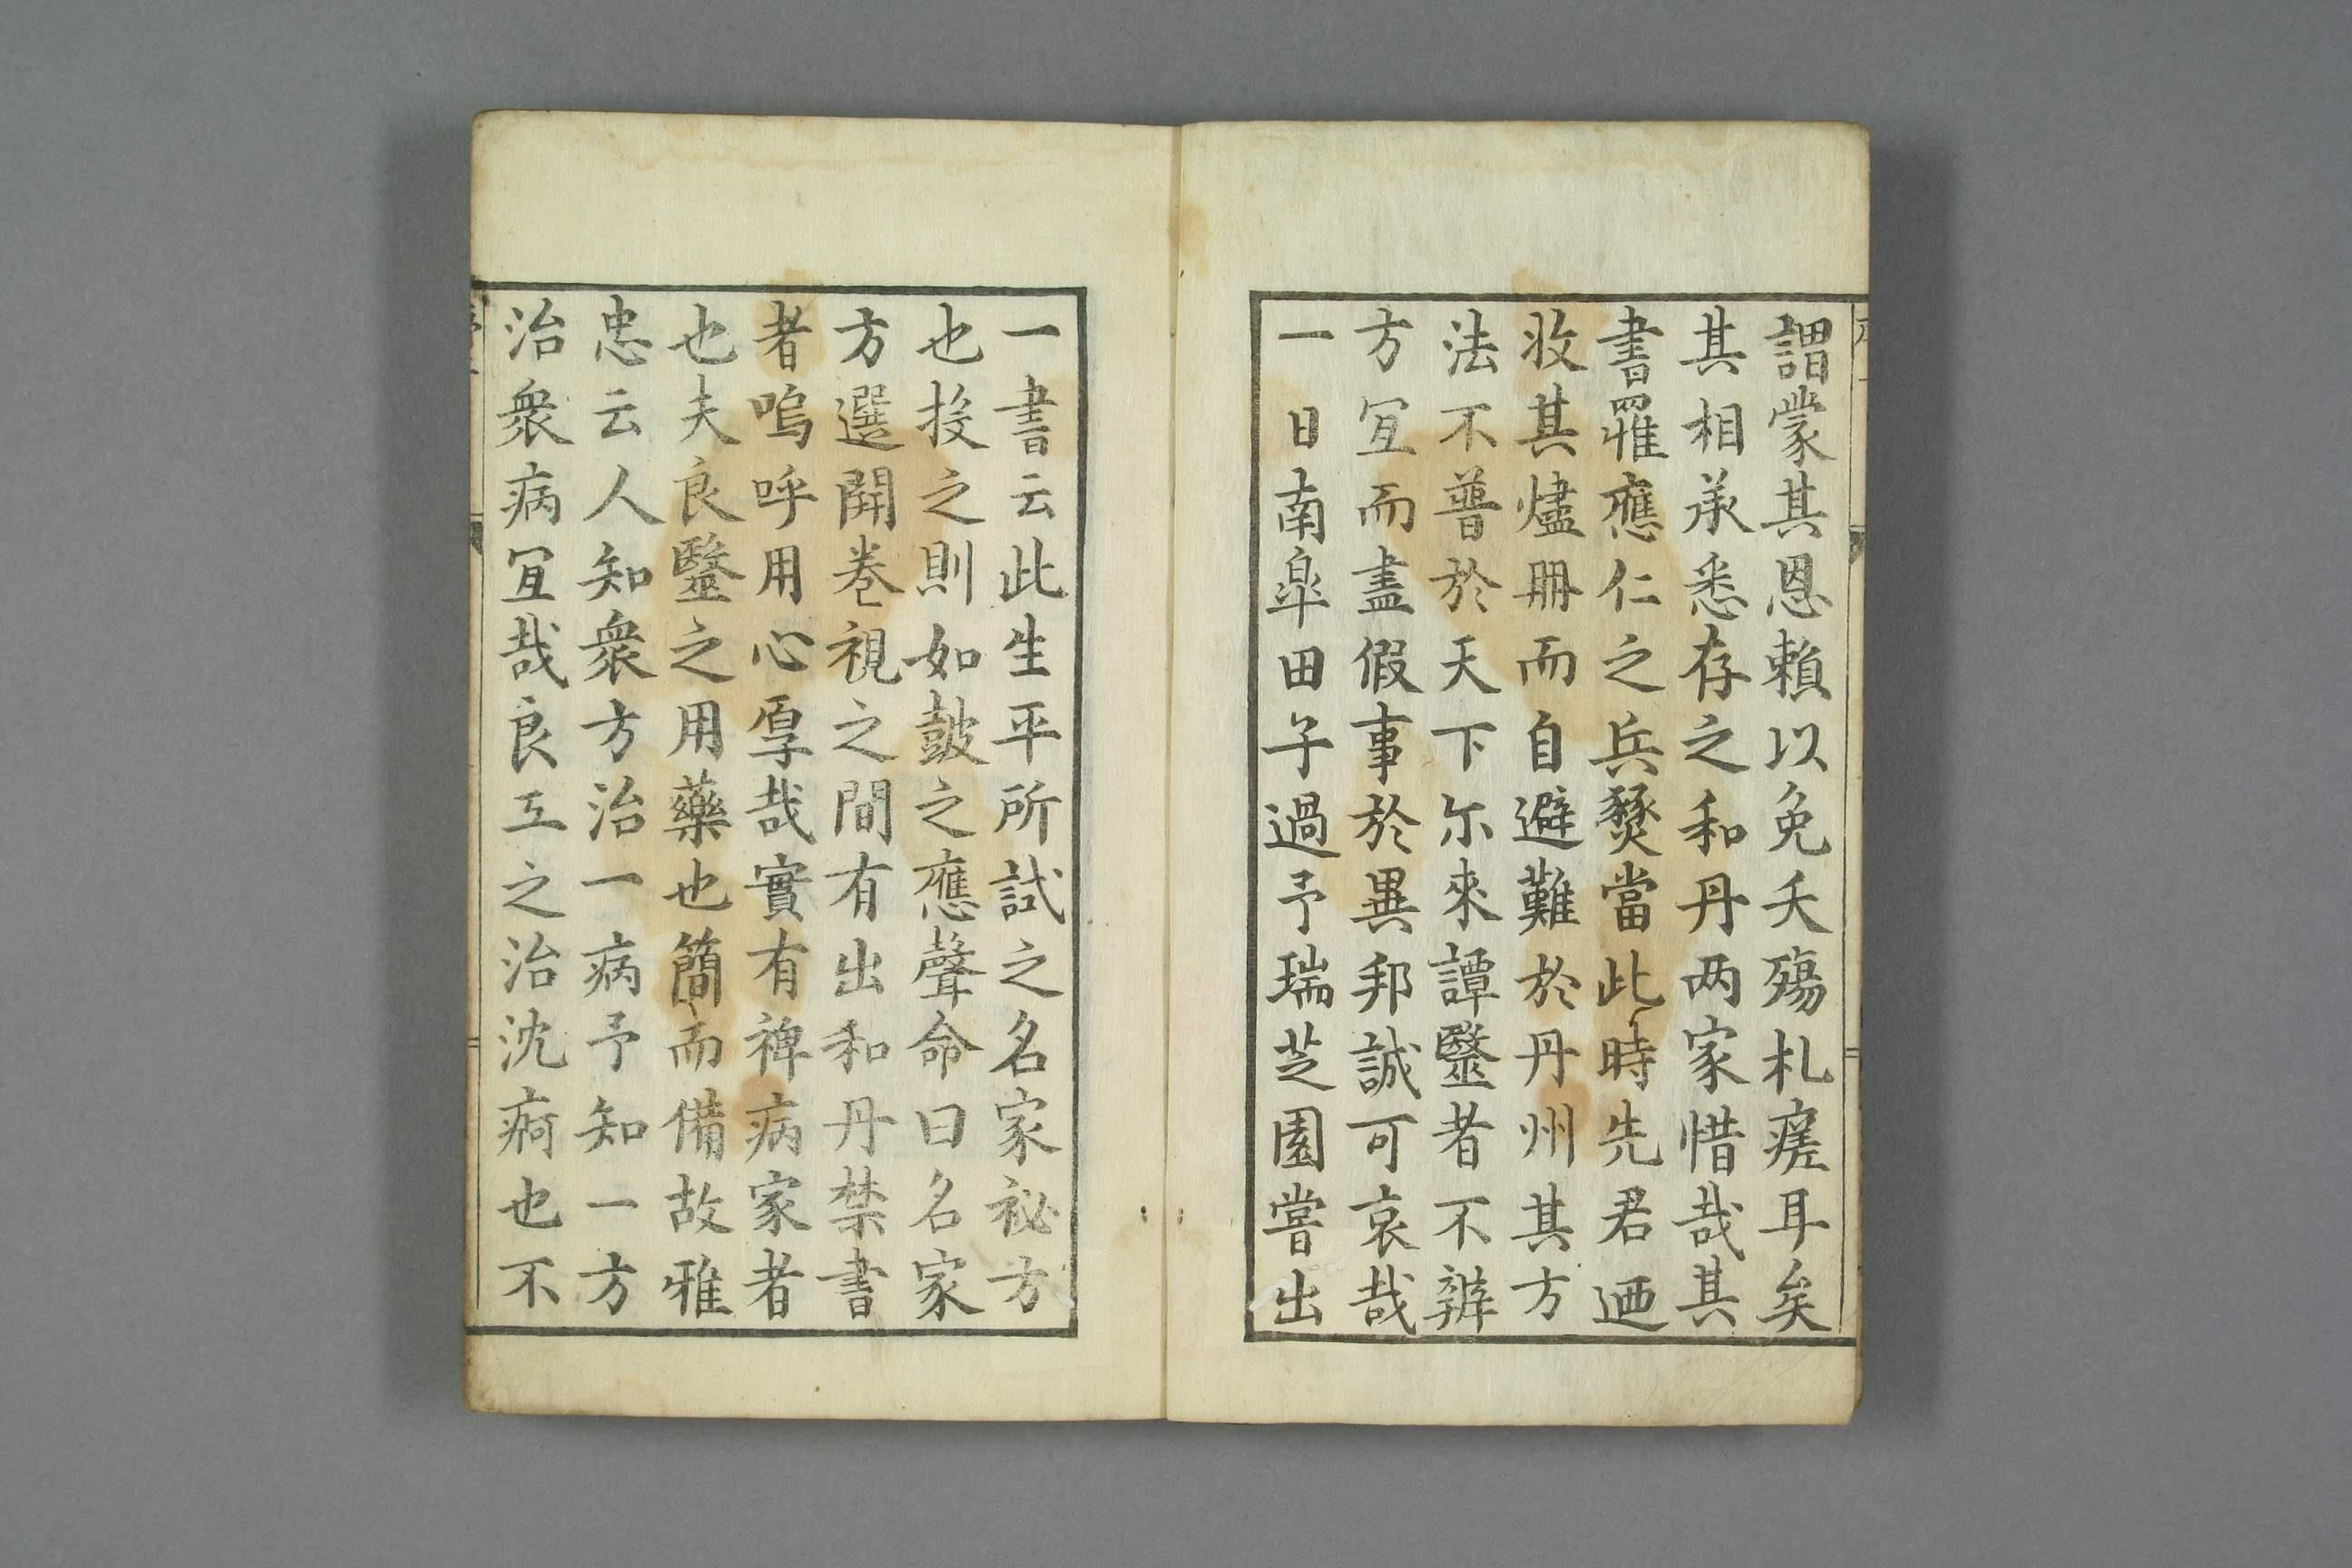 謂蒙其恩賴以免夭殤札瘥耳矣
其相承悉存之和丹两家惜哉其
書罹應仁之兵燹當此時先君迺
收其燼册而自避難於丹州其方
法不普於天下尓來譚毉者不辨
方宜而盡假事於異邦誠可哀哉
一日南皐田子過予瑞芝園嘗出
一書云此生平所試之名家祕方
也投之則如皷之應聲命曰名家
方選開卷視之間有出和丹禁書
者嗚呼用心厚哉實有裨病家者
也夫良毉之用藥也簡而備故雅
忠云人知衆方治一病予知一方
治衆病宜哉良工之治沈痾也不